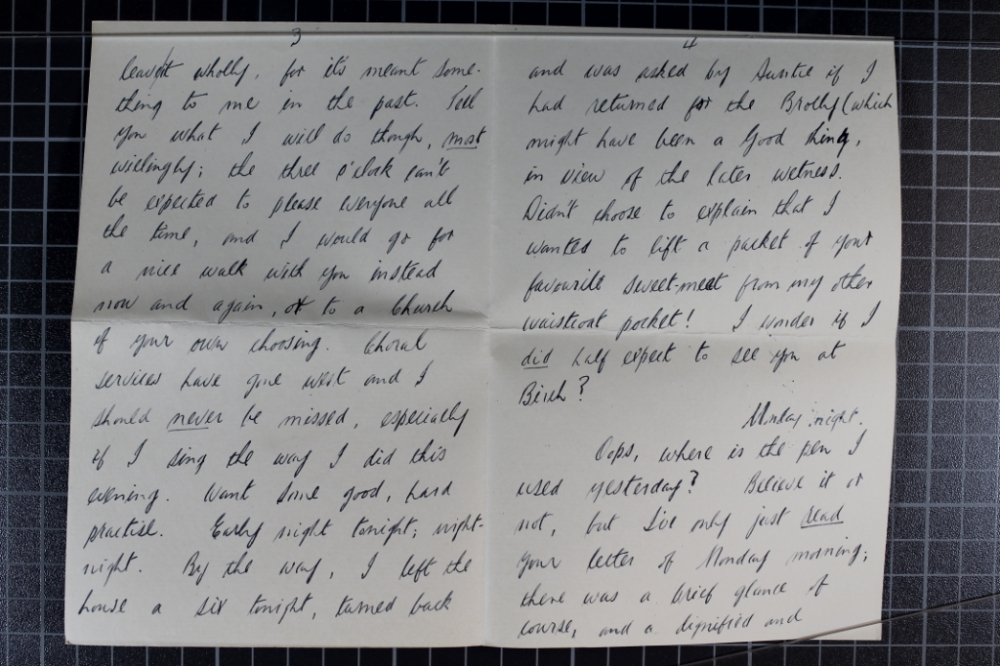 3
leave it wholly, for it's meant some-
thing to me in the past. Tell
you what I will do though, most
willingly; the three o'clock can't
be expected to please everyone all
the time, and I would go for
a nice walk with you instead
now and again, or to a Church
of your own choosing. Choral
services have gone west and I
should never be missed, especially
if I sing the way I did this
evening. Want some good, hard
practise. Early night tonight; night-
night. By the way, I left the
house a six tonight, turned back
4
and was asked by Auntie if I
had returned for the Brolly (which
might have been a Good thing,
in view of the later wetness.
Didn't choose to explain that I
wanted to lift a packet of your
favourite sweet-meat from my other
waistcoat pocket! I wonder if I
did half expect to see you at
Birch?
Monday night.
Oops, where is the pen I
used yesterday? Believe it or
not, but I've only just read
your letter of Monday morning;
there was a brief glance of
course, and a dignified and